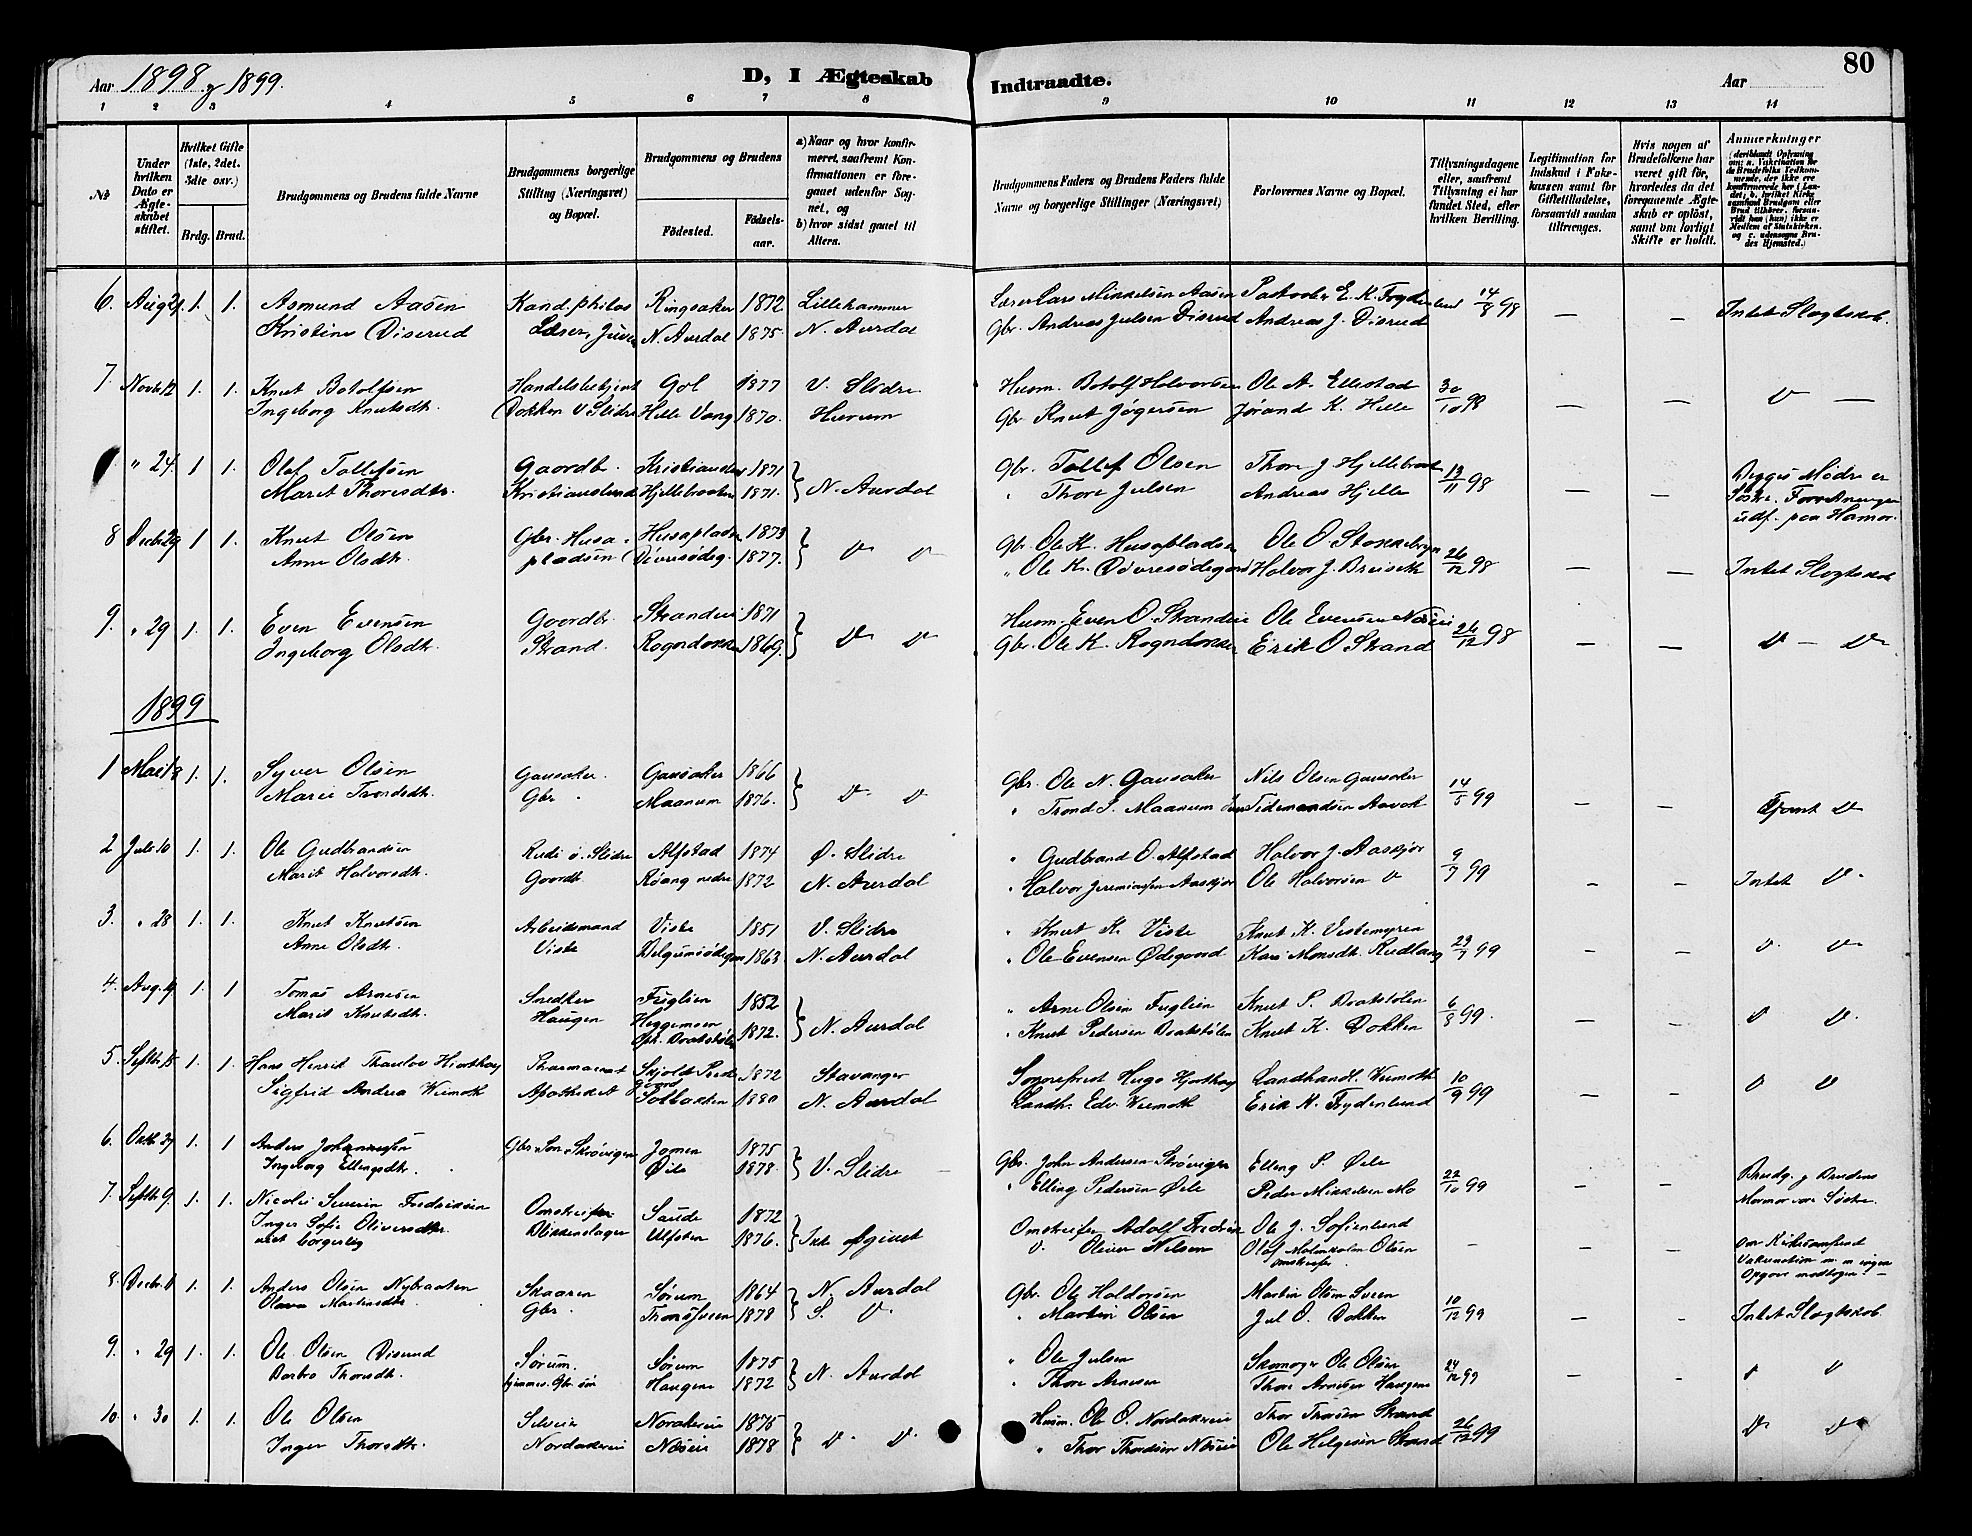 Aar 1898 og 1899.
D, I Ægteskab
Indtraadte.
Aar
80
1 2 3 4 5 6 7 8 9 10 11 12 13 14
No
Under hvilken Dato er Ægteskabet stiftet.
Hvilket Gifte (1ste, 2det, 3die osv.)
Brdg. Brud.
Brudgommens og Brudens fulde Navne
Brudgommens borgerlige Stilling (Næringsvei) og Bopæl.
Brudgommens og Brudens
Fødested.
Fødselsaar.
a) Naar og hvor konfirmeret, saafremt Konfirmationen er foregaaet udenfor Sognet, og
b) hvor sidst gaaet til Alters.
Brudgommens Faders og Brudens Faders fulde Navne og borgerlige Stillinger (Næringsvei)
Forlovernes Navne og Bopæl.
Tillysningsdagene eller, saafremt Tillysning ei har fundet Sted, efter hvilken Bevilling.
Legitimation for Indskud i Enkekassen samt for Giftetilladelse, forsaavidt saadan tiltrænges.
Hvis nogen af Brudefolkene har været gift før, hvorledes da det foregaaende Ægteskab er opløst, samt om lovligt Skifte er holdt.
Anmærkninger
6. Aug 29. 1. 1. Asmund Aasen Kand. philos Ringsaker 1872 Lillehammer Lærer Lars Mikkelsen Aasen Pastoren E. K. Frydenlund 14/8 98
Kristine Diserud Læser, N. Aurdal 1875 N. Aurdal Gbr. Andreas Julsen Diserud Andreas J. Diserud — — Intet Slegtskab.
7. Novb. 12 1. 1. Knut Botolfsen Handelsbetjent Gol 1877 V. Slidre Husm. Botolf Halvorsen Ole A. Ellestad 30/10 98
Ingeborg Knutsdtr. Dokken V Slidre Helle Vang 1870. Hurum Gbr. Knut Jøgersen Jørand K. Helle — —
" 24. 1 1. Olaf Tollefsen Gaardbr. Kristianslund 1871 Gbr. Tollef Olsen Thore J Hjellebraaten 13/11 98 Begges Mødre er
Marit Thoresdtr. Kristianslund Hjellebraaten 1871. N. Aurdal " Thore Julsen Andreas Hjelle — — Søstre.
udf. paa Hamar.
8 Decbr. 29 1 1. Knut Olsen Gbr. Husapladsen Husapladsen 1873 Gbr. Ole K. Husapladsen Ole O Stokkebryn 26/12 98
Anne Olsdtr. 1877. " Ole K. Halvor J. Breiseth — — Intet Slegtskab
9. " 29 1. 1. Even Evensen Gaardbr. Strandeie 1871 Husm. Even O. Strandeie Ole Evensen Nøseie 26/12 98
Ingeborg Olsdtr. Strand. Rogndokken 1869. Gbr. Ole K. Rogndokken Erik O Strand — —
1899
1 Mai 18 1. 1. Syver Olsen Gausaker. Gausaker 1866 Gbr. Ole N. Gausaker Nils Olsen Gausaker 14/5 99
Marie Trondsdtr. Gbr. Maanum 1876. " Trond S. Maanum Tidemandsen Aavok — —
2 Juli 10 1. 1. Ole Gudbrandsen Rudi ø. Slidre Alfstad 1874 Ø. Slidre " Gudbrand O. Alfstad Halvor J. Aaskjær 9/7 99
Marit Halvorsdtr. Gaardb. Røang nedre 1872 N. Aurdal " Halvor Jeremiassen Aaskjær Ole Halvorsen — — Intet
3. " 28 1. 1. Knut Knutsen Arbeidsmand Viste 1851 V. Slidre " Knut K. Viste Knut K. Vestemyren 23/7 99
Anne Olsdtr. Viste 1863. N. Aurdal " Ole Evensen Ødegaard Kari Monsdtr. Rudlang — —
4. Aug. 19. 1. 1 Tomas Arnesen Snedker Fuglien 1852 " Arne Olsen Fuglien Knut P. Baatstølen 6/8 99.
Marit Knutsdtr. Haugen Heggemoen 1872. N. Aurdal " Knut Pedersen Baatstølen Knut K. Dokken — —
5. Septbr. 15 1. 1. Hans Henrik Thaulow Hjorthøy Pharmaceut 1872 Stavanger Sogneprest Hugo Hjorthøy Landhandl. Wermoth 10/9 99
Sigfrid Andrea Wermoth Apotheket Solbakken 1880 N. Aurdal Landh. Edv. Wermoth Erik K. Frydenlund — —
6. Okt. 27 1. 1 Anders Johannessen Gbr. Søn Skrøvigen Jomen 1875 Gbr. John Andersen Skrøvigen Elling P. Øile
Ingeborg Ellingsdtr. Øile 1878. V. Slidre " Elling Pedersen Øile Peder Mikkelsen Mo 22/10 99 Brudg. og Brudens
Mormor var Søstre.
7. Septbr. 9. 1. 1. Nicolai Severin Fredriksen Omstreifer Saude 1872 Omstreifer Adolf Fredriksen Ole J. Sofienlund
Inger Sofie Oliversdtr. Blikkenslager Ulfsten 1876. Ikke opgivet Oliver Nilsen Olaf Malmkolm Olsen — — —
viet borgerlig omstreifer. om Kirkesamfund
Vaksination m. m. ingen
Opgave modtagen.
8. Decbr. 8 1. 1. Anders Olsen Nybraaten Skaaren Sørum 1864 N. Aurdal Gbr. Ole Haldorsen Martin Olsen Sveen 10/12 99
Olava Martinsdtr. Gbr. Thomassveen 1878 S. " Martin Olsen Jul O. Dokken — — Intet Slegtskab.
9. " 29 1. 1. Ole Olsen Diserud Sørum. Sørum 1875 N. Aurdal " Ole Julsen Skomager Ole Olsen 24/12 99
Barbro Thoresdtr. hjemmev. Gbr. søn Haugene 1872 " Thore Arnesen Thore Arnesen Haugene — —
10. " 30 1. 1. Ole Olsen Selveier Norakereie 1875 Husm. Ole O. Nordakereie Thor Thorsen Strand 26/12 99
Inger Thorsdtr. Nordakereie Nøseie 1878 " Thor Thordsen Nøseie Ole Helgesen Strand